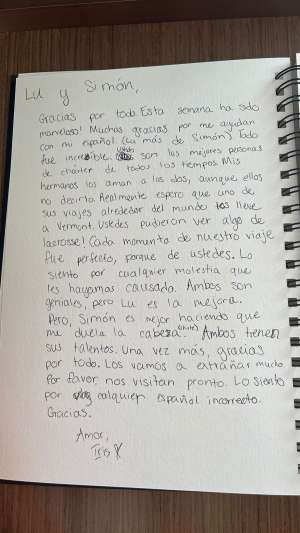 Lu y Simón,
Gracias por todo. Esta semana ha sido
marveloso! Muchas gracias por me ayudan
con mi español (Lu más de Simón). Todo
fue increíble. Ustedes son las mejores personas
de charlar de todos los tiempos. Mis
hermanos los aman a los dos, aunque ellos
no decirlo. Realmente espero que uno de
sus viajes alrededor del mundo los lleve
a Vermont. Ustedes pudieron ver algo de
lacrosse! Cada momento de nuestro viaje
fue perfecto, porque de ustedes. Lo
siento por cualquier molestia que
les hayamos causado. Ambos son
geniales, pero Lu es la mejora.
Pero, Simón es mejor haciendo que
me duela la cabeza. Ambos tienen
sus talentos. Una vez más, gracias
por todo. Los vamos a extrañar mucho
Por favor nos visitan pronto. Lo siento
por calquier español incorrecto.
Gracias.
Amor,
Iris